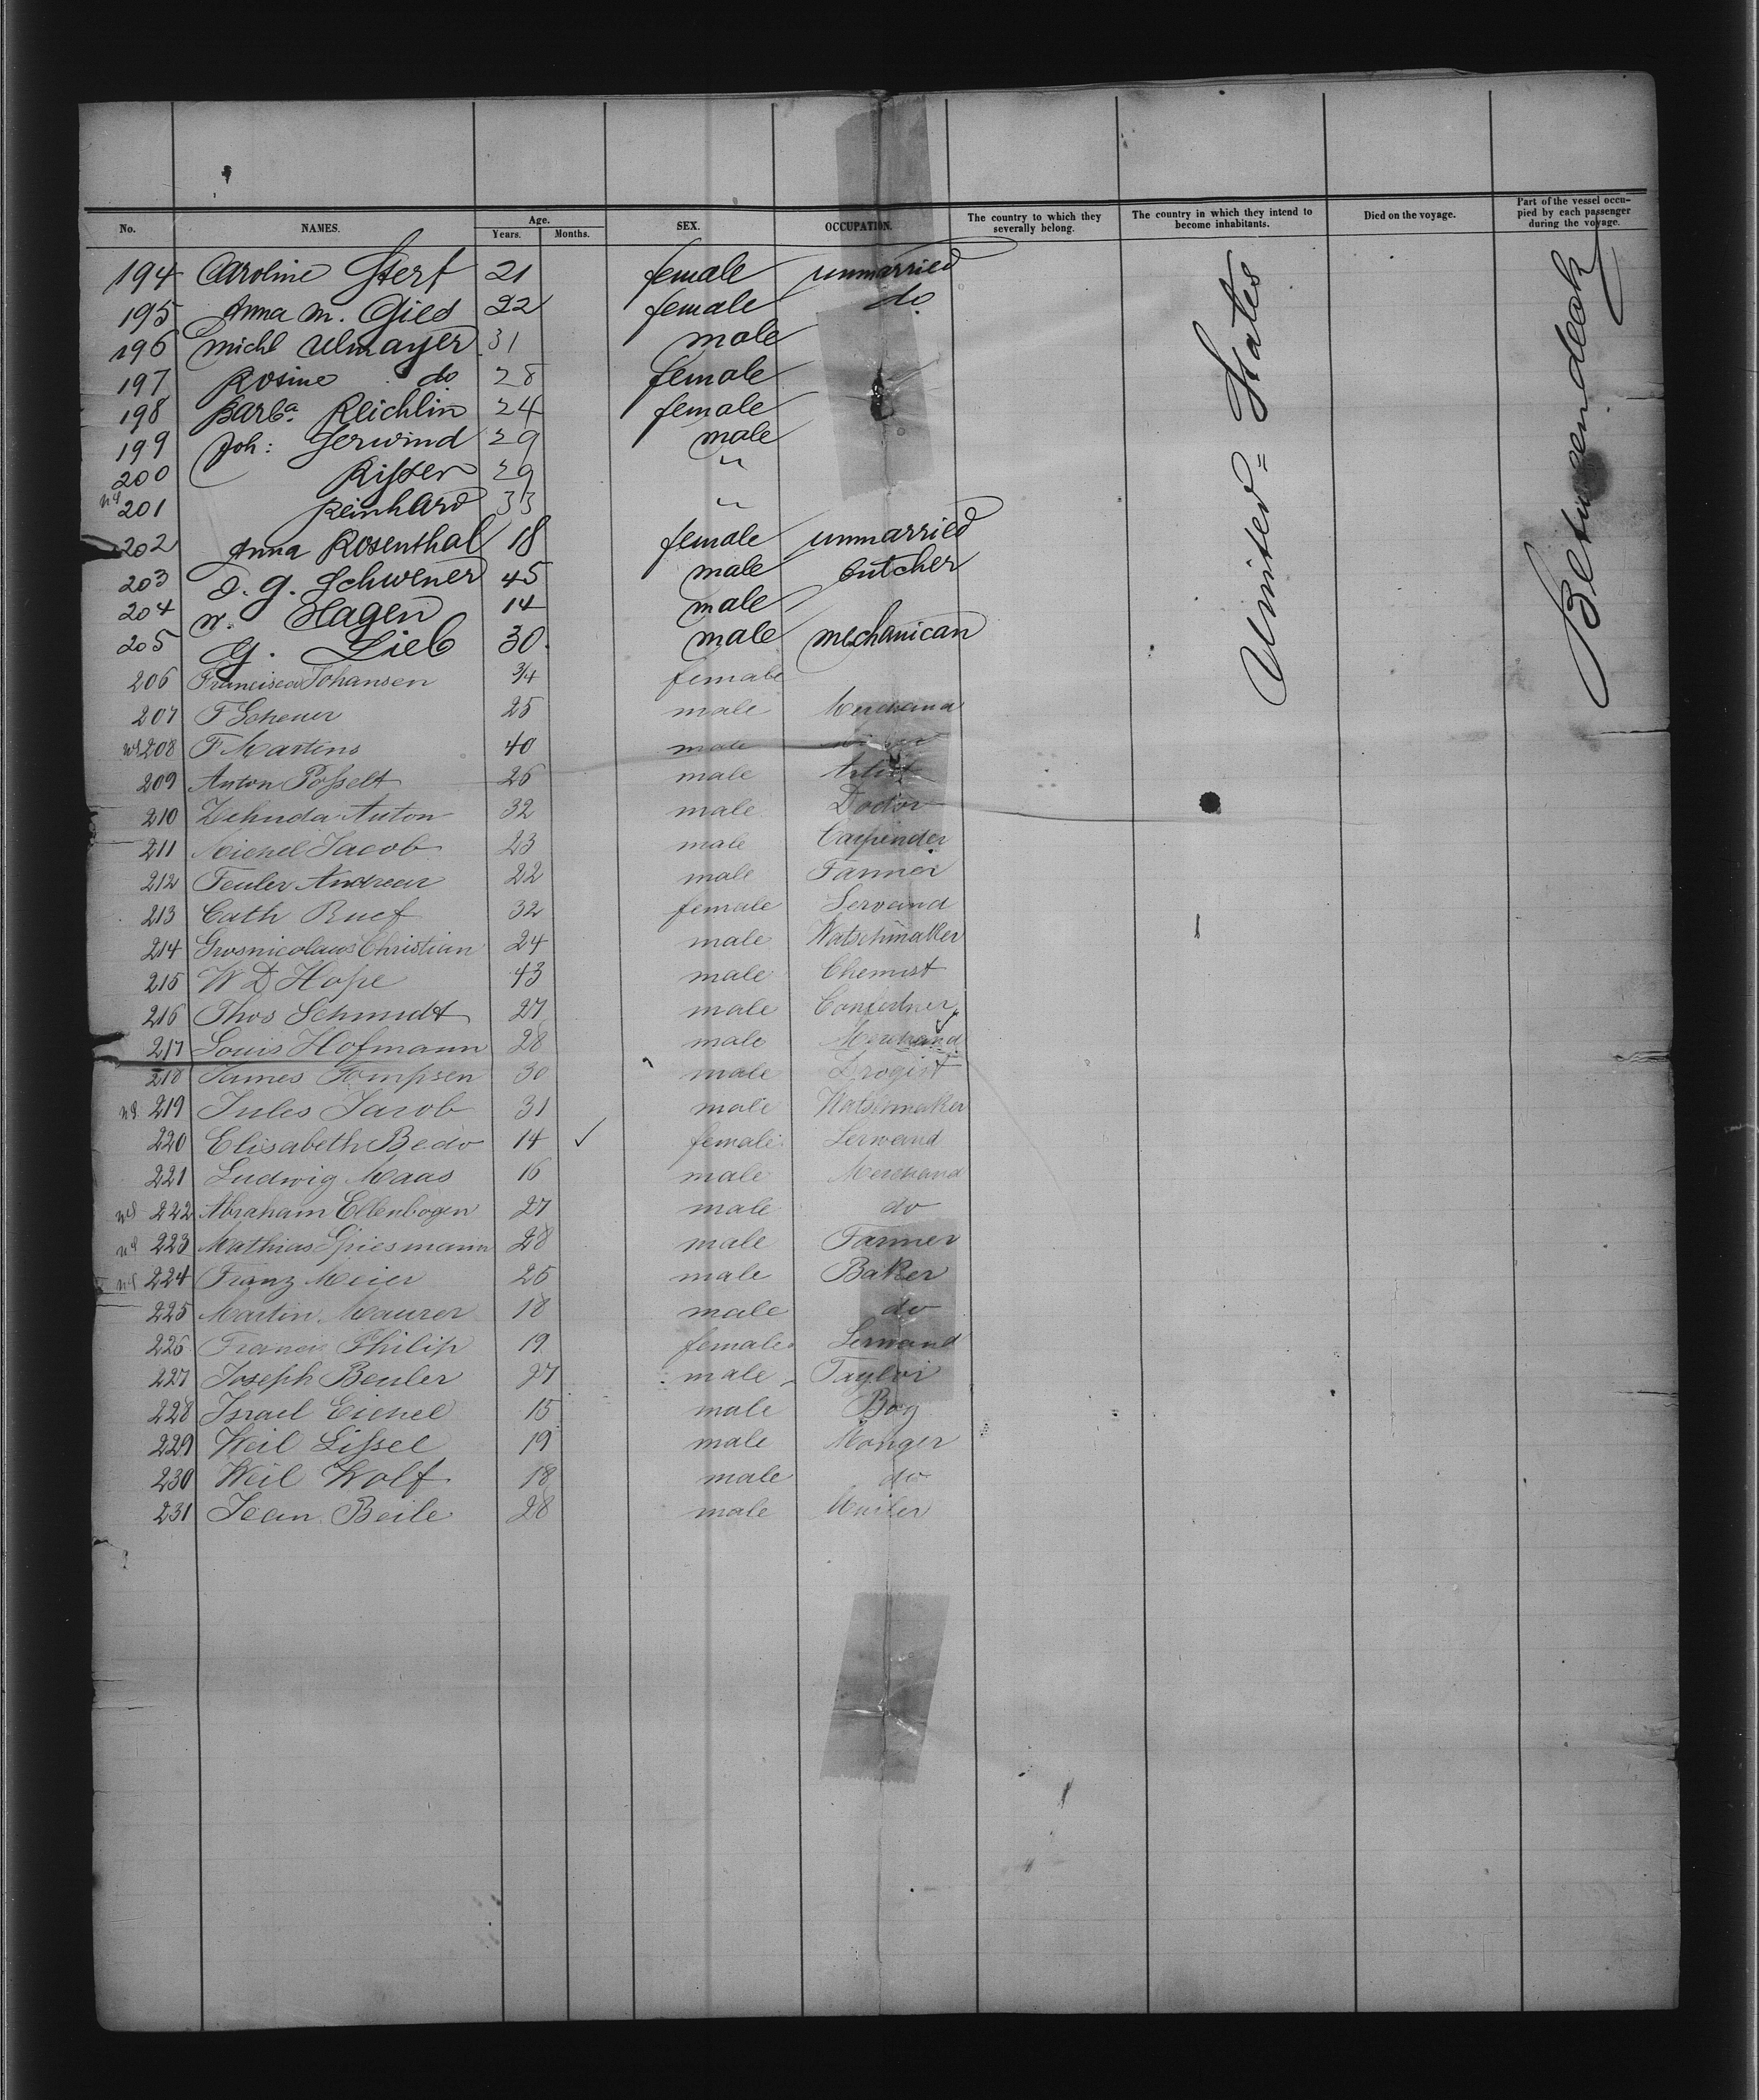 No. NAMES. Age. Years. Months. SEX. OCCUPATION. The country to which they severally belong. The country in which they intend to become inhabitants. Died on the voyage. Part of the vessel occupied by each passenger during the voyage.
194 Caroline Sterf 21 female unmarried
195 Anna M. Gies 22 female do
196 Michl Ulmayer 31 male
197 Rosine do 28 female
198 Barba. Reichlin 24 female
199 Joh: Gerwind 29 male
200 Risser 29 "
201 Reinhard 33 "
202 Anna Rosenthal 18 female unmarried
203 D. G. Schwener 45 male butcher
204 W. Hagen 14 male
205 G. Lieb 30 male mechanican
206 Francisca Johansen 3/4 female
207 F Scheuer 25 male Merchand
208 F Martens 40 male
209 Anton Posselt 26 male Artist
210 Zehnda Anton 32 male Doctor
211 Michel Jacob 23 male Carpender
212 Feuler Andreas 22 male Farmer
213 Cath Ruef 32 female Servand
214 Grosnicolaus Christian 24 male Watschmaker
215 W D Hope 43 male Chemist
216 Thos Schmidt 27 male
217 Louis Hofmann 28 male Merchand
218 James Tompsen 30 male Drogist
219 Jules Jacob 31 male Watschmaker
220 Elisabeth Bedo 14 ✓ female Servand
221 Ludwig Maas 16 male Merchand
222 Abraham Ellenbogen 27 male do
223 Mathias Griesmann 28 male Farmer
224 Franz Meier 25 male Baker
225 Martin Maurer 18 male do
226 Philip 19 female Servand
227 Joseph Beuler 27 male Taylor
228 Israel Eichel 15 male Boy
229 Weil Lissel 19 male Monger
230 Weil Wolf 18 male do
231 Jean Beile 28 male
United=States
Betweendeck